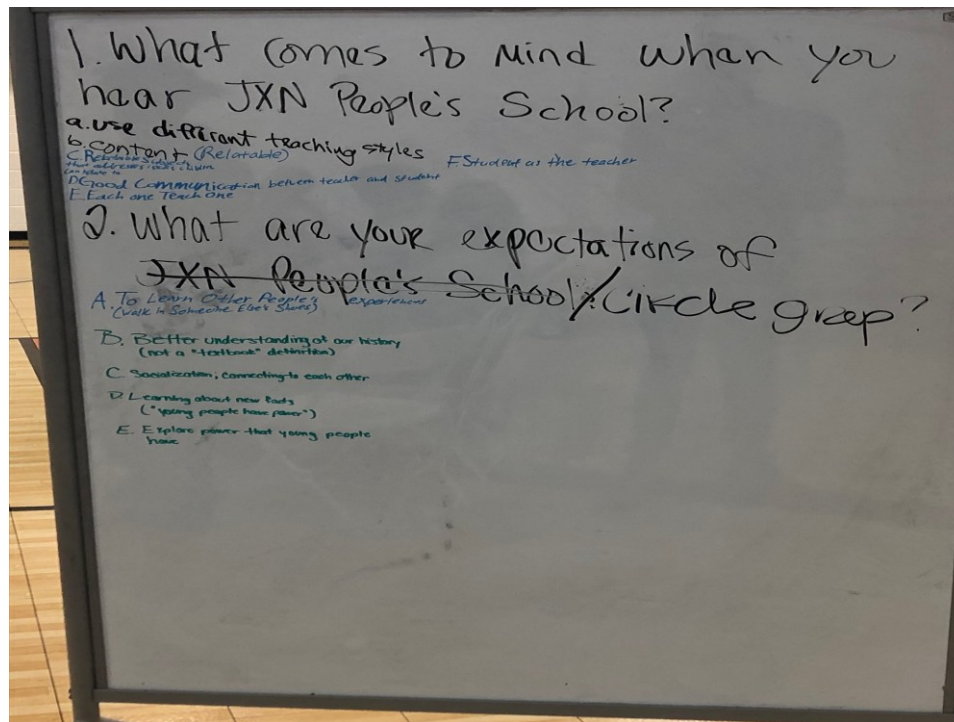 1. What comes to Mind when you
hear JXN People's School?
a. use different teaching styles
b. content (Relatable)
C. 
that addresses
F. Student as the teacher
D. Good Communication between teacher and student
E. Each one Teach One
2. What are your expectations of
JXN People's School/Circle group?
A. To Learn Other People's experiences
(Walk in Someone Else's Shoes)
B. Better understanding of our history
(not a "textbook" definition)
C. Socialization; connecting to each other
D. Learning about new facts
("young people have power")
E. Explore power that young people
have